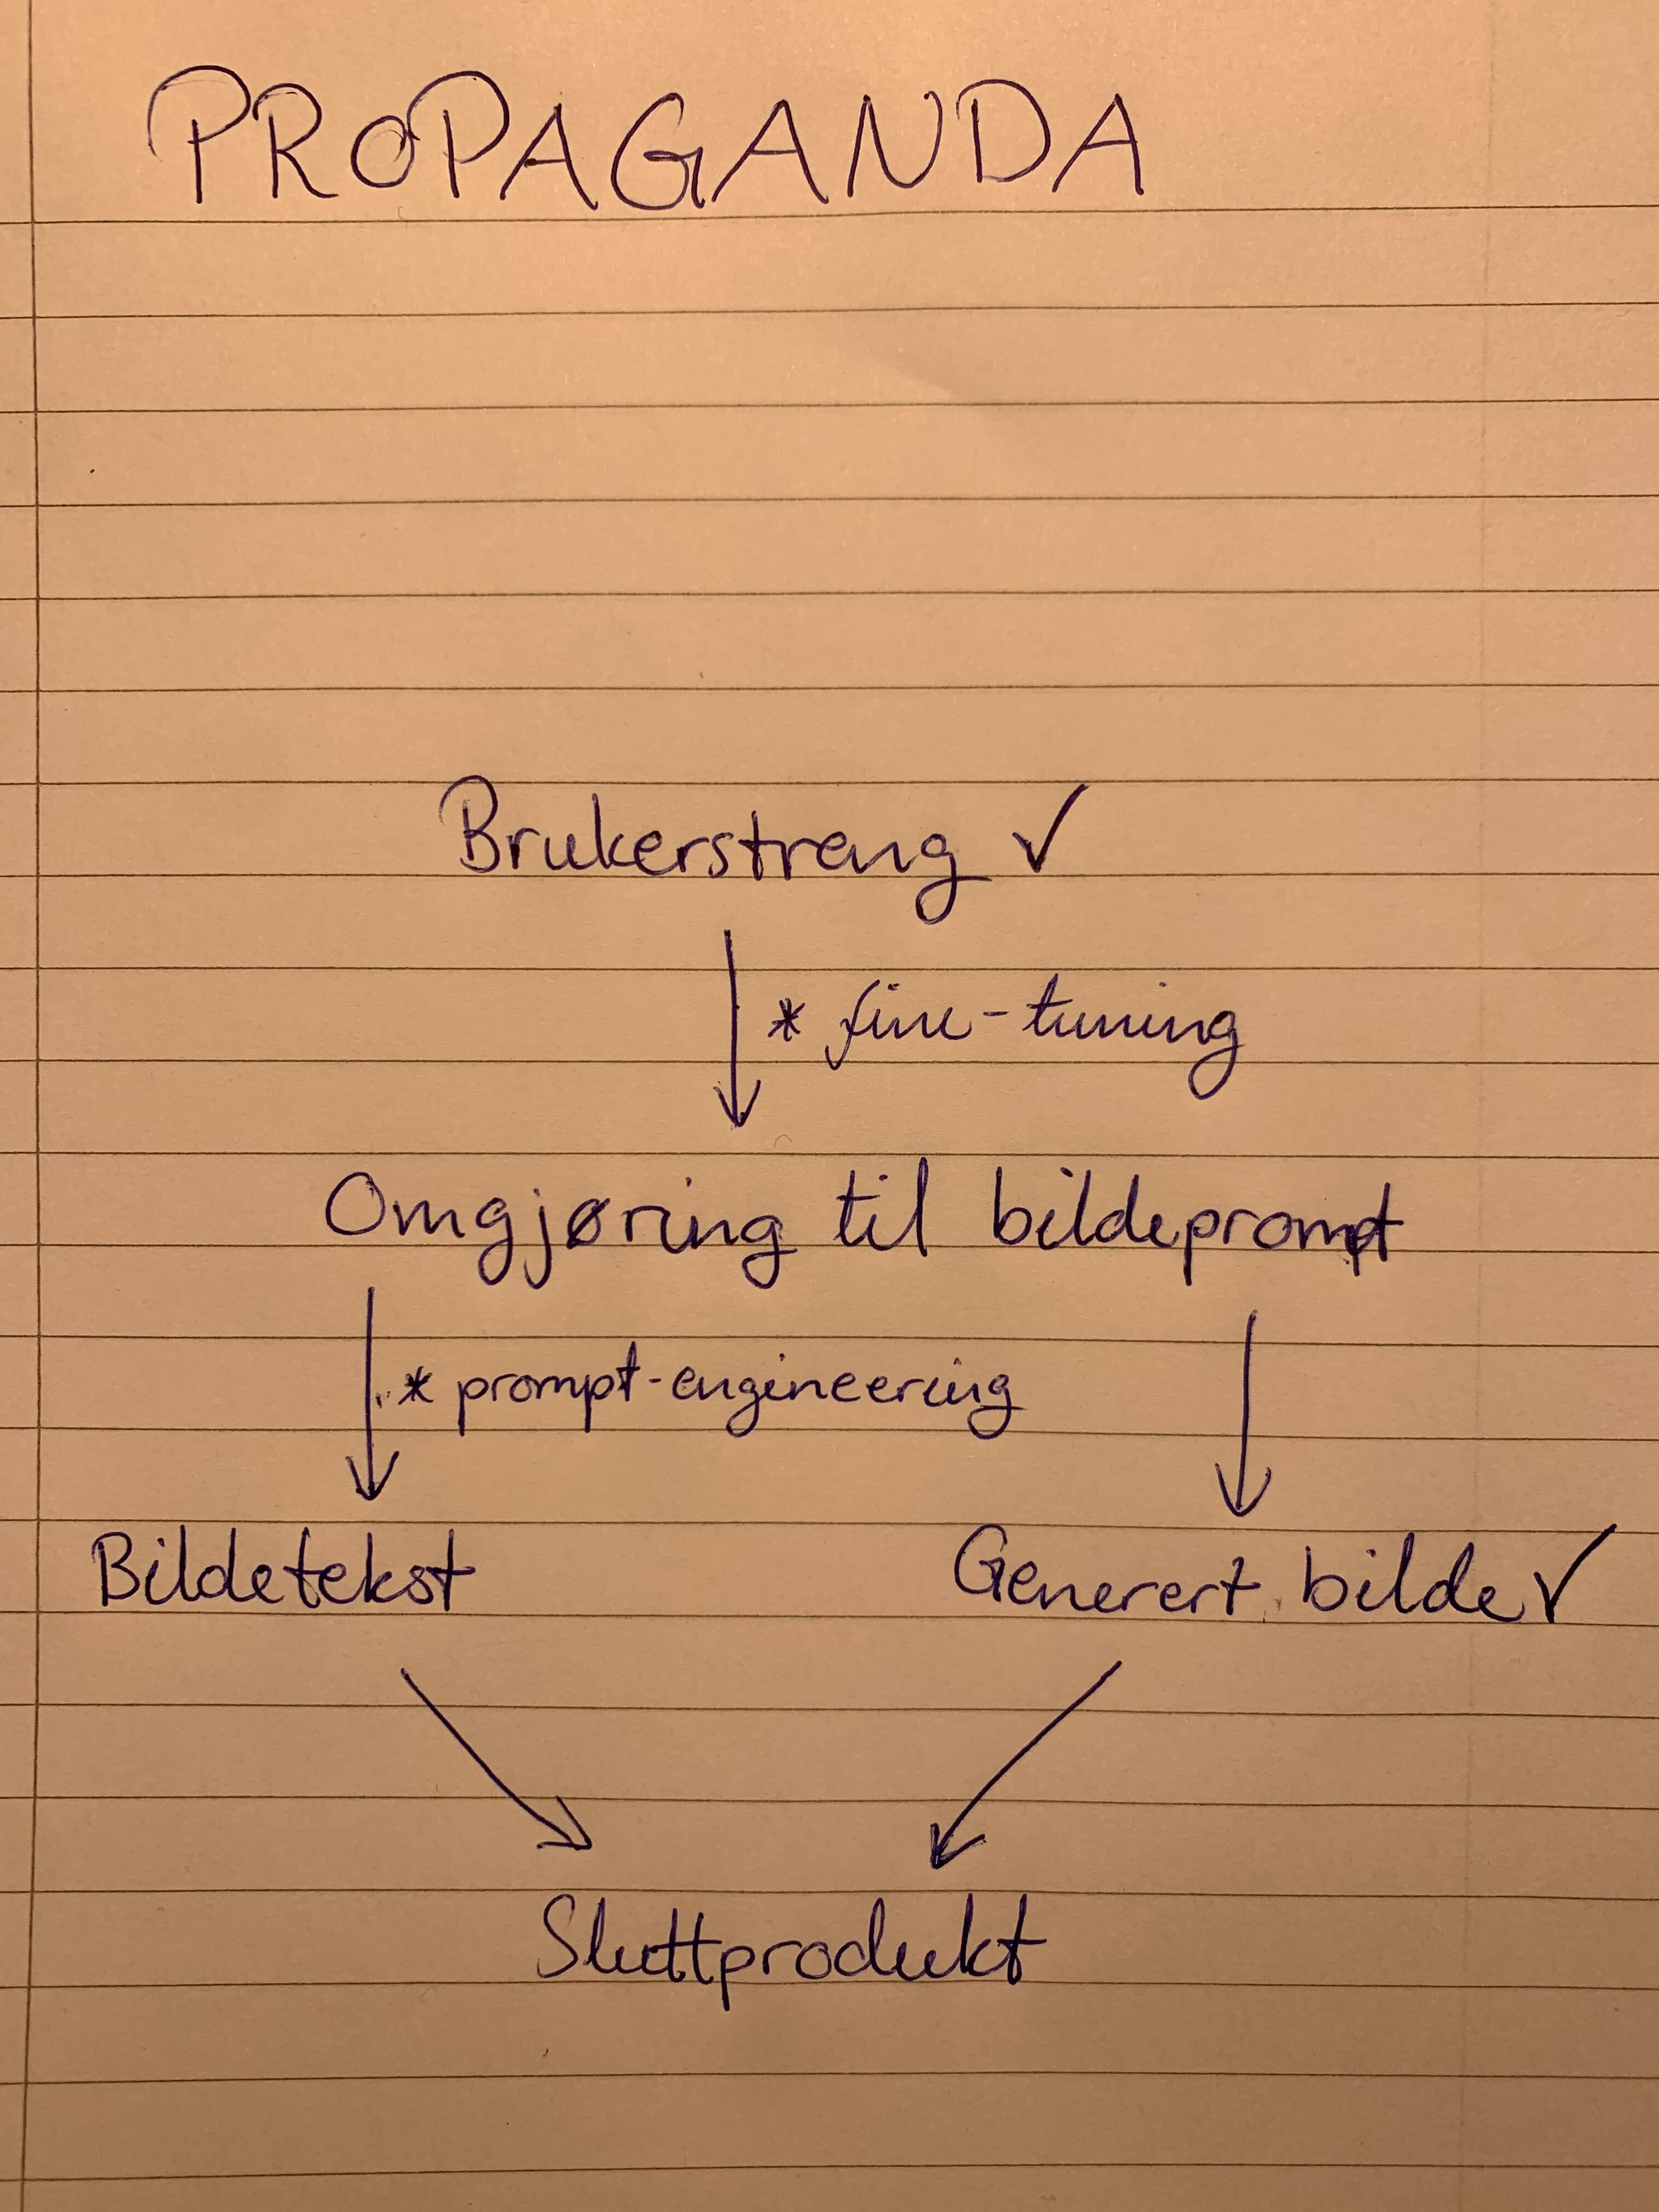 PROPAGANDA
Brukerstreng ✓
* fine-tuning
Omgjøring til bildeprompt
* prompt-engineering
Bildetekst
Generert bilde ✓
Sluttprodukt